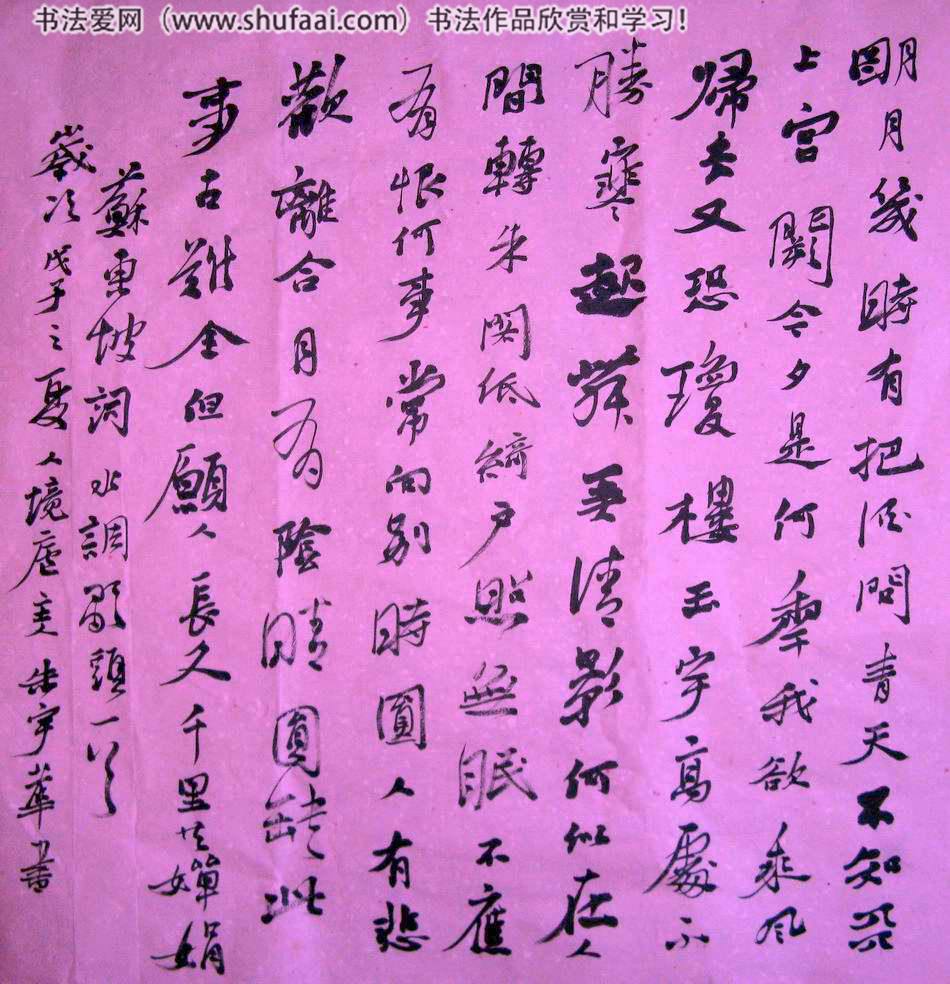 书法爱网（www.shufaai.com）书法作品欣赏和学习！
明月幾時有把酒問青天不知天
上宮闕今夕是何年我欲乘風
歸去又恐瓊樓玉宇高處不
勝寒起舞弄清影何似在人
間轉朱閣低綺户照無眠不應
有恨何事常向别時圓人有悲
歡離合月有陰晴圓缺此
事古難全但願人長久千里共嬋娟
蘇東坡詞水調歌頭一首
歲次戊子之夏人境廬主朱宇華書